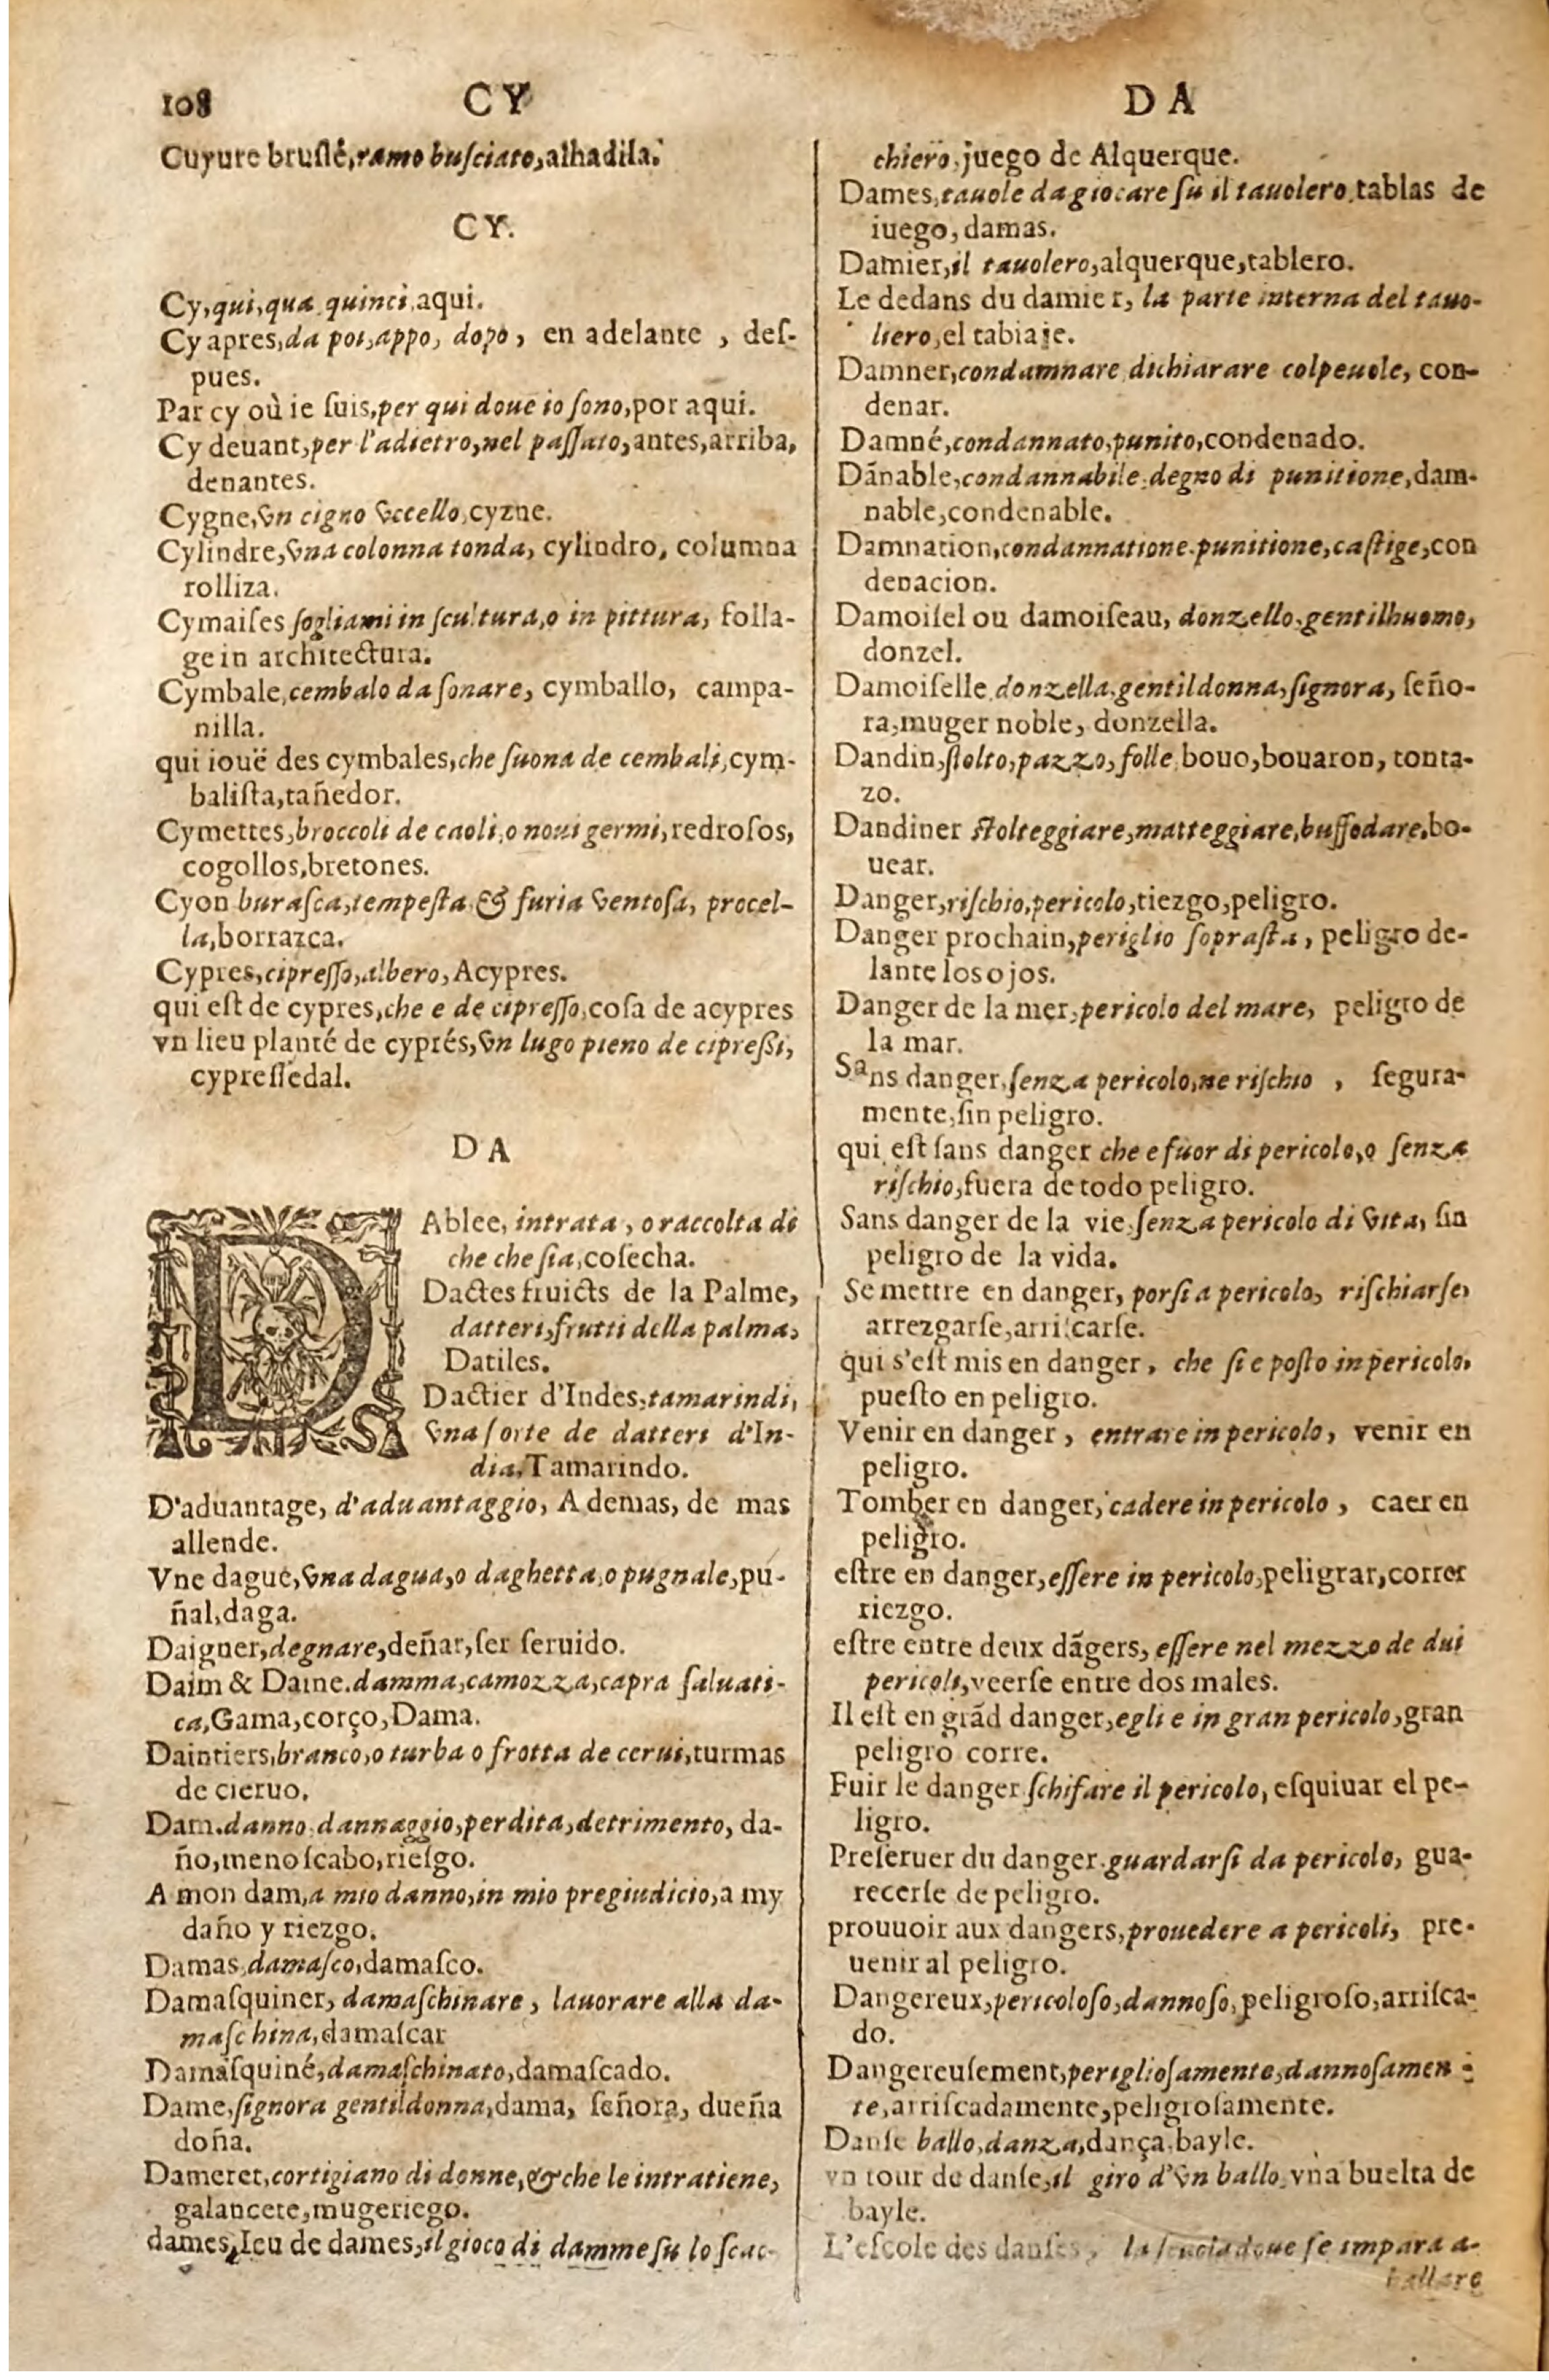 108 CY DA
Cuyure bruslé, ramo busciato, alhadila.
CY.
Cy, qui, qua quinci, aqui.
Cy apres, da poi, appo, dopo, en adelante, des-
pues.
Par cy où ie suis, per qui doue io sono, por aqui.
Cy deuant, per l'adietro, nel passato, antes, arriba,
denantes.
Cygne, vn cigno vccello, cyzne.
Cylindre, vna colonna tonda, cylindro, columna
rolliza.
Cymaises fogliami in scultura, o in pittura, folla-
ge in architectura.
Cymbale, cembalo da sonare, cymballo, campa-
nilla.
qui iouë des cymbales, che suona de cembali, cym-
balista, tañedor.
Cymettes, broccoli de caoli, o noui germi, redrosos,
cogollos, bretones.
Cyon burasca, tempesta & furia ventosa, procel-
la, borrazca.
Cypres, cipresso, albero, Acypres.
qui est de cypres, che e de cipresso, cosa de acypres
vn lieu planté de cyprés, vn lugo pieno de cipressi,
cypressedal.
DA
DAblee, intrata, o raccolta di
che che sia, cosecha.
Dactes fruicts de la Palme,
datteri, frutti della palma,
Datiles.
Dactier d'Indes, tamarindi,
vna sorte de datteri d'In-
dia, Tamarindo.
D'aduantage, d'aduantaggio, A demas, de mas
allende.
Vne dague, vna dagua, o daghetta, o pugnale, pu-
ñal, daga.
Daigner, degnare, deñar, ser seruido.
Daim & Daine. damma, camozza, capra saluati-
ca, Gama, corço, Dama.
Daintiers, branco, o turba o frotta de cerui, turmas
de cieruo.
Dam. danno. dannaggio, perdita, detrimento, da-
ño, menoscabo, riesgo.
A mon dam, a mio danno, in mio pregiudicio, a my
daño y riezgo.
Damas, damasco, damasco.
Damasquiner, damaschinare, lauorare alla da-
maschina, damascar
Damasquiné, damaschinato, damascado.
Dame, signora gentildonna, dama, señora, dueña
doña.
Dameret, cortigiano di donne, & che le intratiene,
galancete, mugeriego.
dames, Ieu de dames, il gioco di damme su lo scac-
chiero, juego de Alquerque.
Dames, tauole da giocare su il tauolero, tablas de
iuego, damas.
Damier, il tauolero, alquerque, tablero.
Le dedans du damier, la parte interna del tauo-
liero, el tabiaje.
Damner, condamnare dichiarare colpeuole, con-
denar.
Damné, condannato, punito, condenado.
Dānable, condannabile. degno di punitione, dam-
nable, condenable.
Damnation, condannatione. punitione, castige, con
denacion.
Damoisel ou damoiseau, donzello, gentilhuomo,
donzel.
Damoiselle donzella, gentildonna, signora, seño-
ra, muger noble, donzella.
Dandin, stolto, pazzo, folle bouo, bouaron, tonta-
zo.
Dandiner stolteggiare, matteggiare, buffodare, bo-
uear.
Danger, rischio, pericolo, riezgo, peligro.
Danger prochain, periglio soprasta, peligro de-
lante los ojos.
Danger de la mer, pericolo del mare, peligro de
la mar.
Sans danger, senza pericolo, ne rischio, segura-
mente, sin peligro.
qui est sans danger che e fuor di pericolo, o senza
rischio, fuera de todo peligro.
Sans danger de la vie, senza pericolo di vita, sin
peligro de la vida.
Se mettre en danger, porsi a pericolo, rischiarse,
arrezgarse, arriscarse.
qui s'est mis en danger, che si e posto in pericolo,
puesto en peligro.
Venir en danger, entrare in pericolo, venir en
peligro.
Tomber en danger, cadere in pericolo, caer en
peligro.
estre en danger, essere in pericolo, peligrar, correr
riezgo.
estre entre deux dāgers, essere nel mezzo de dui
pericoli, veerse entre dos males.
Il est en grād danger, egli e in gran pericolo, gran
peligro corre.
Fuir le danger schifare il pericolo, esquiuar el pe-
ligro.
Preseruer du danger. guardarsi da pericolo, gua-
recerse de peligro.
prouuoir aux dangers, prouedere a pericoli, pre-
uenir al peligro.
Dangereux, pericoloso, dannoso, peligroso, arrisca-
do.
Dangereusement, perigliosamente, dannosamen-
te, arriscadamente, peligrosamente.
Danse ballo, danza, dança, bayle.
vn tour de danse, il giro d'vn ballo, vna buelta de
bayle.
L'escole des danses, la scuola doue se impara a-
ballare